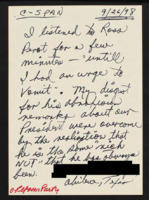 C-SPAN 9/26/98
I listened to Ross
Perot for a few
minutes - until
I had an urge to
vomit. My disgust
for his obnoxious
remarks about our
President were overcome
by the realization that
he is the same rich
NUT - that he has always
been.
Reform Party